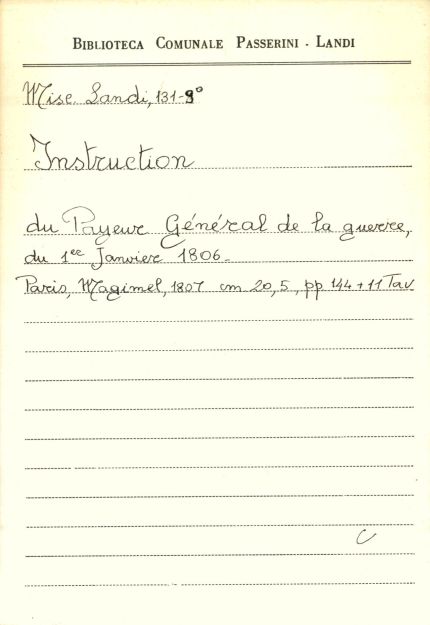 BIBLIOTECA COMUNALE PASSERINI - LANDI
Misc. Landi, 131-9°
Instruction
du Payeur Général de la guerre,
du 1er Janvier 1806.
Paris, Magimel, 1807 cm 20,5, pp 144 + 11 Tav
C